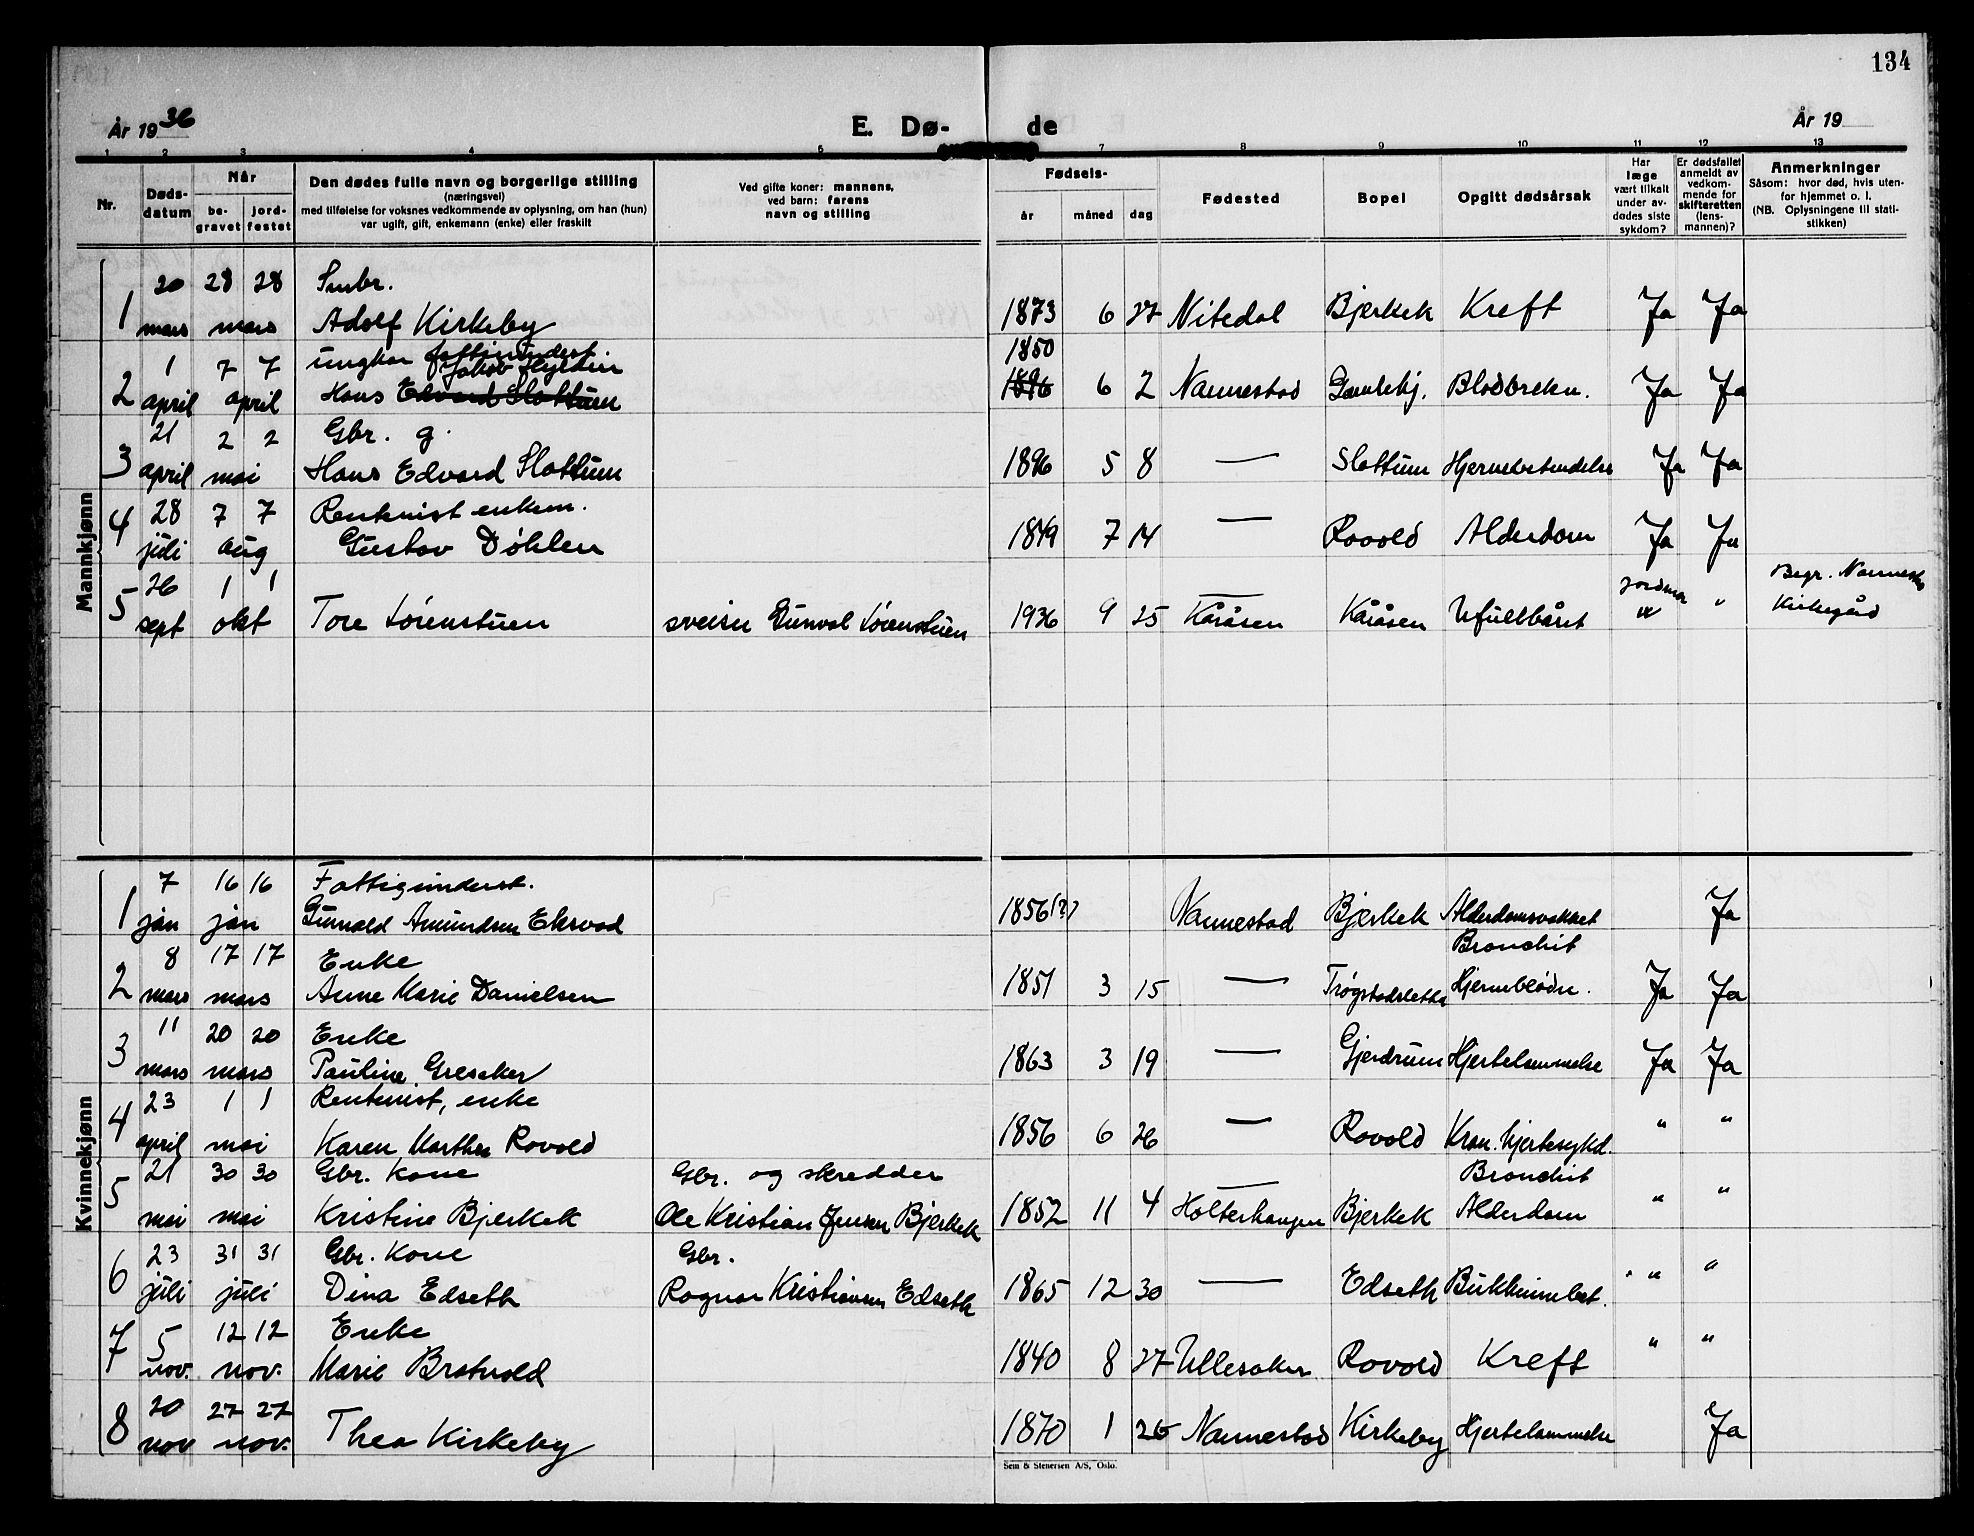 134
År 1936
E. Dø-
de
År 19
1 2 3 4 5 7 8 9 10 11 12 13
Nr.
Døds-
datum
Når
be-
gravet
jord-
festet
Den dødes fulle navn og borgerlige stilling
(næringsvei)
med tilføielse for voksnes vedkommende av oplysning, om han (hun)
var ugift, gift, enkemann (enke) eller fraskilt
Ved gifte koner: mannens,
ved barn: farens
navn og stilling
Fødsels-
år måned dag
Fødested
Bopel
Opgitt dødsårsak
Har
læge
vært tilkalt
under av-
dødes siste
sykdom?
Er dødsfallet
anmeldt av
vedkom-
mende for
skifteretten
(lens-
mannen)?
Anmerkninger
Såsom: hvor død, hvis uten-
for hjemmet o. l.
(NB. Oplysningene til stati-
stikken)
Mannkjønn
20 28 28 Smbr.
1 mars mars Adolf Kirkeby 1873 6 27 Nitedal Bjerkek Kreft Ja Ja
1 7 7 ungkar fattigunderst. 1850
Jakob Hyldin
2 april april Hans Edvard Slottum 1896 6 2 Nannestad Gamlehj. Blodbrekn. Ja Ja
21 2 2 Gbr. g.
3 april mai Hans Edvard Slottum 1896 5 8 — Slottum Hjernebetendelse Ja Ja
28 7 7 Rentenist enkem.
4 juli aug Gustav Døhlen 1849 7 14 — Rovold Alderdom Ja Ja
26 1 1 — jordmor Begr. Nannestad
5 sept okt Tore Lørenstuen sveiser Gunval Lørenstuen 1936 9 25 Kåråsen Kåråsen Ufullbåret " " Kirkegård
Kvinnekjønn
7 16 16 Fattigunderst.
1 jan jan Gunnald Amundsen Eksvad 1856(?) Nannestad Bjerkek Alderdomsvakhet Ja
8 17 17 Enke Bronchit
2 mars mars Anne Marie Danielsen 1851 3 15 — Trøgstadsletta Hjerneblødn. Ja Ja
11 20 20 Enke
3 mars mars Pauline Gresaker 1863 3 19 — Gjerdrum Hjertelammelse Ja Ja
23 1 1 Rentenist, enke
4 april mai Karen Marthea Rovold 1856 6 26 — Rovold Kron. hjertesykd. " "
21 30 30 Gbr. Kone Gbr. og skredder — Bronchit
5 mai mai Kristine Bjerkek Ole Kristian Jensen Bjerkek 1852 11 4 Holterhaugen Bjerkek Alderdom " "
23 31 31 Gbr. Kone Gbr.
6 juli juli Dina Edseth Ragnar Kristiansen Edseth 1865 12 30 — Edseth Bukhinnebet. " "
5 12 12 Enke
7 nov. nov. Marie Bratvold 1840 8 27 Ullesaker Rovold Kreft " "
20 27 27
8 nov nov. Thea Kirkeby 1870 1 26 Nannestad Kirkeby Hjertelammelse Ja
Sem & Stenersen A/S, Oslo.